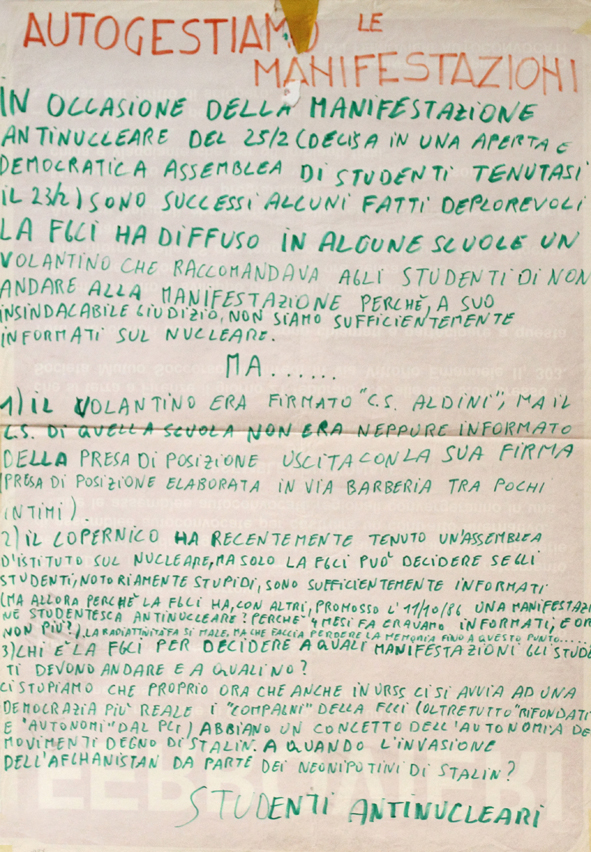 AUTOGESTIAMO LE
MANIFESTAZIONI
IN OCCASIONE DELLA MANIFESTAZIONE
ANTINUCLEARE DEL 25/2 (DECISA IN UNA APERTA E
DEMOCRATICA ASSEMBLEA DI STUDENTI TENUTASI
IL 23/2) SONO SUCCESSI ALCUNI FATTI DEPLOREVOLI
LA FGCI HA DIFFUSO IN ALCUNE SCUOLE UN
VOLANTINO CHE RACCOMANDAVA AGLI STUDENTI DI NON
ANDARE ALLA MANIFESTAZIONE PERCHÈ, A SUO
INSINDACABILE GIUDIZIO, NON SIAMO SUFFICIENTEMENTE
INFORMATI SUL NUCLEARE.
MA......
1) IL VOLANTINO ERA FIRMATO "C.S. ALDINI", MA IL
C.S. DI QUELLA SCUOLA NON ERA NEPPURE INFORMATO
DELLA PRESA DI POSIZIONE USCITA CON LA SUA FIRMA
(PRESA DI POSIZIONE ELABORATA IN VIA BARBERIA TRA POCHI
INTIMI).
2) IL COPERNICO HA RECENTEMENTE TENUTO UN'ASSEMBLEA
D'ISTITUTO SUL NUCLEARE, MA SOLO LA FGCI PUO' DECIDERE SE GLI
STUDENTI, NOTORIAMENTE STUPIDI, SONO SUFFICIENTEMENTE INFORMATI
(MA ALLORA PERCHE' LA FGCI HA, CON ALTRI, PROMOSSO L'11/10/86 UNA MANIFESTAZI
NE STUDENTESCA ANTINUCLEARE? PERCHE' 4 MESI FA ERAVAMO INFORMATI, E OR
NON PIU'?), LA RADIATTIVITÀ FA SI MALE, MA CHE FACCIA PERDERE LA MEMORIA FINO A QUESTO PUNTO.....
3) CHI E' LA FGCI PER DECIDERE A QUALI MANIFESTAZIONI GLI STUDE
TI DEVONO ANDARE E A QUALI NO?
CI STUPIAMO CHE PROPRIO ORA CHE ANCHE IN URSS CI SI AVVIA AD UNA
DEMOCRAZIA PIU' REALE I "COMPAGNI" DELLA FGCI (OLTRETUTTO "RIFONDATI"
E "AUTONOMI" DAL PCI) ABBIANO UN CONCETTO DELL'AUTONOMIA DE
MOVIMENTI DEGNO DI STALIN. A QUANDO L'INVASIONE
DELL'AFGHANISTAN DA PARTE DEI NEONIPOTINI DI STALIN?
STUDENTI ANTINUCLEARI